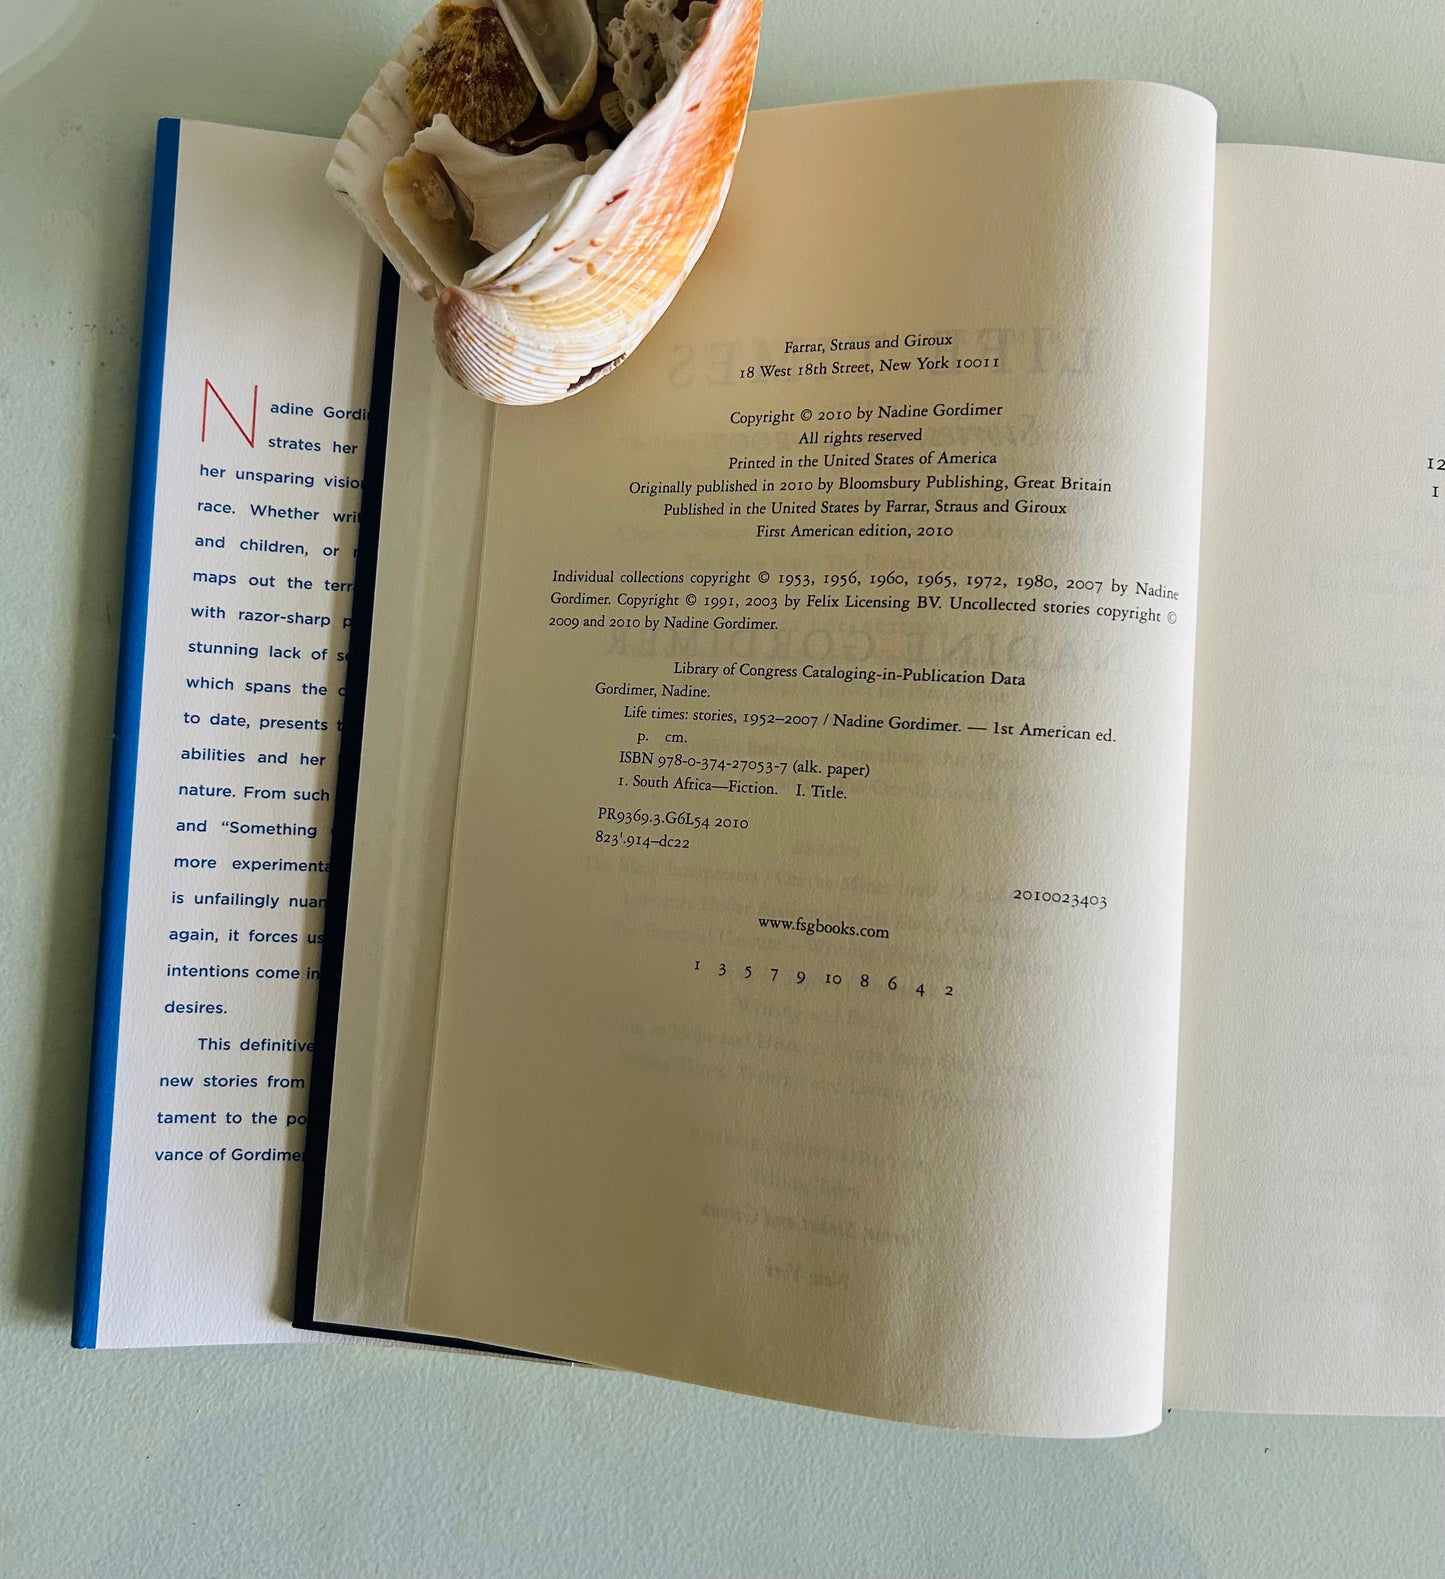 Nadine Gordi
strates her
her unsparing visio
race. Whether writ
and children, or
maps out the terr
with razor-sharp p
stunning lack of se
which spans the
to date, presents
abilities and her
nature. From such
and “Something
more experimenta
is unfailingly nuan
again, it forces us
intentions come in
desires.
This definitive
new stories from
tament to the po
vance of Gordimer
Farrar, Straus and Giroux
18 West 18th Street, New York 10011
Copyright © 2010 by Nadine Gordimer
All rights reserved
Printed in the United States of America
Originally published in 2010 by Bloomsbury Publishing, Great Britain
Published in the United States by Farrar, Straus and Giroux
First American edition, 2010
Individual collections copyright © 1953, 1956, 1960, 1965, 1972, 1980, 2007 by Nadine
Gordimer. Copyright © 1991, 2003 by Felix Licensing BV. Uncollected stories copyright ©
2009 and 2010 by Nadine Gordimer.
Library of Congress Cataloging-in-Publication Data
Gordimer, Nadine.
Life times: stories, 1952–2007 / Nadine Gordimer. — 1st American ed.
p. cm.
ISBN 978-0-374-27053-7 (alk. paper)
1. South Africa—Fiction. I. Title.
PR9369.3.G6L54 2010
823'.914–dc22
2010023403
www.fsgbooks.com
1 3 5 7 9 10 8 6 4 2
12
1